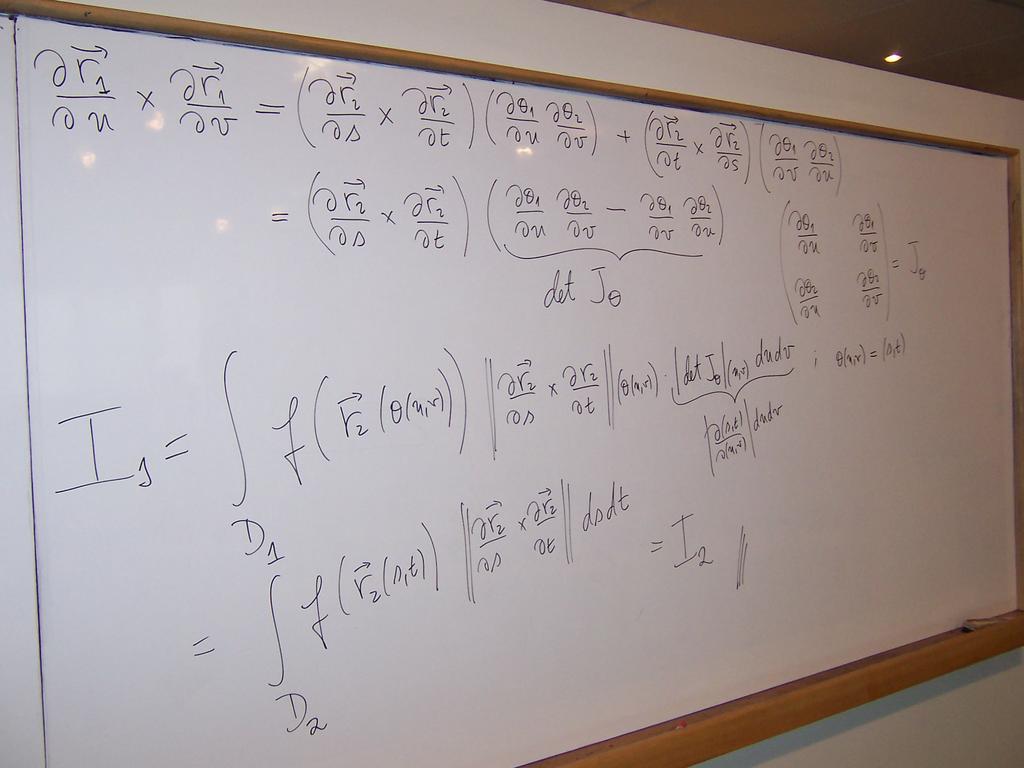 ∂r⃗₁/∂u × ∂r⃗₁/∂v = (∂r⃗₂/∂s × ∂r⃗₂/∂t) (∂θ₁/∂u ∂θ₂/∂v) + (∂r⃗₂/∂t × ∂r⃗₂/∂s) (∂θ₁/∂v ∂θ₂/∂u)
= (∂r⃗₂/∂s × ∂r⃗₂/∂t) (∂θ₁/∂u ∂θ₂/∂v − ∂θ₁/∂v ∂θ₂/∂u)
det J_θ
(∂θ₁/∂u ∂θ₁/∂v ∂θ₂/∂u ∂θ₂/∂v) = J_θ
I₁ = ∫_D₁ f(r⃗₂(θ(u,v))) ‖∂r⃗₂/∂s × ∂r₂/∂t‖(θ(u,v)) · |det J_θ|(u,v) dudv ; θ(u,v) = (s,t)
|∂(s,t)/∂(u,v)| dudv
= ∫_D₂ f(r⃗₂(s,t)) ‖∂r⃗₂/∂s × ∂r⃗₂/∂t‖ dsdt = I₂ //